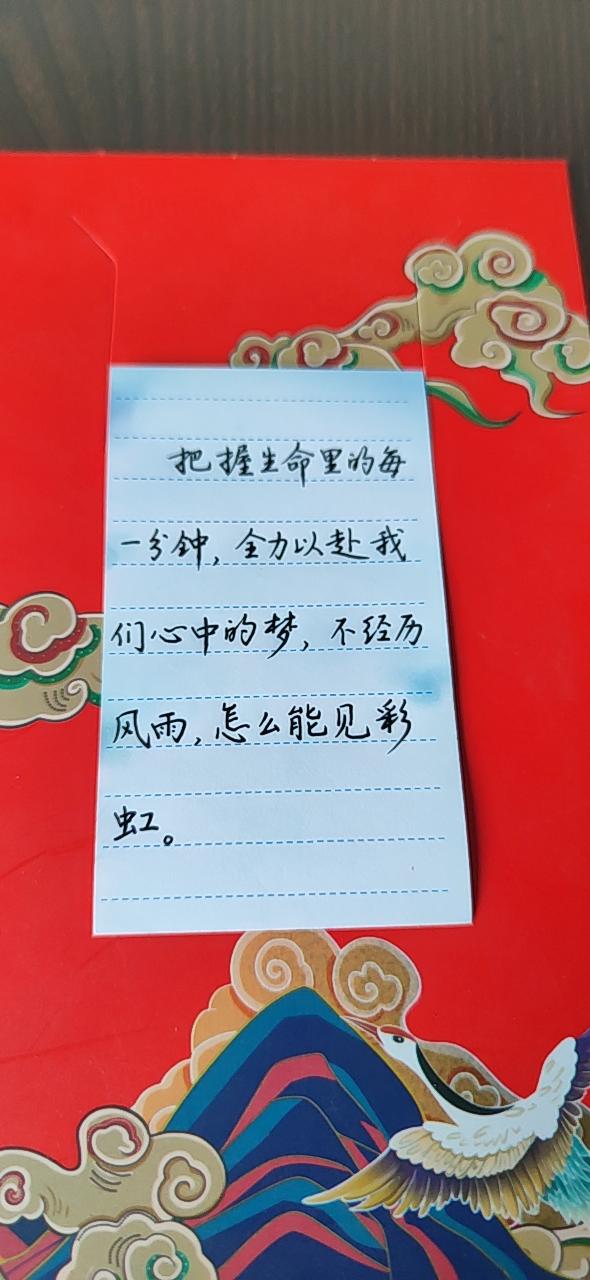 把握生命里的每
一分钟，全力以赴我
们心中的梦，不经历
风雨，怎么能见彩
虹。